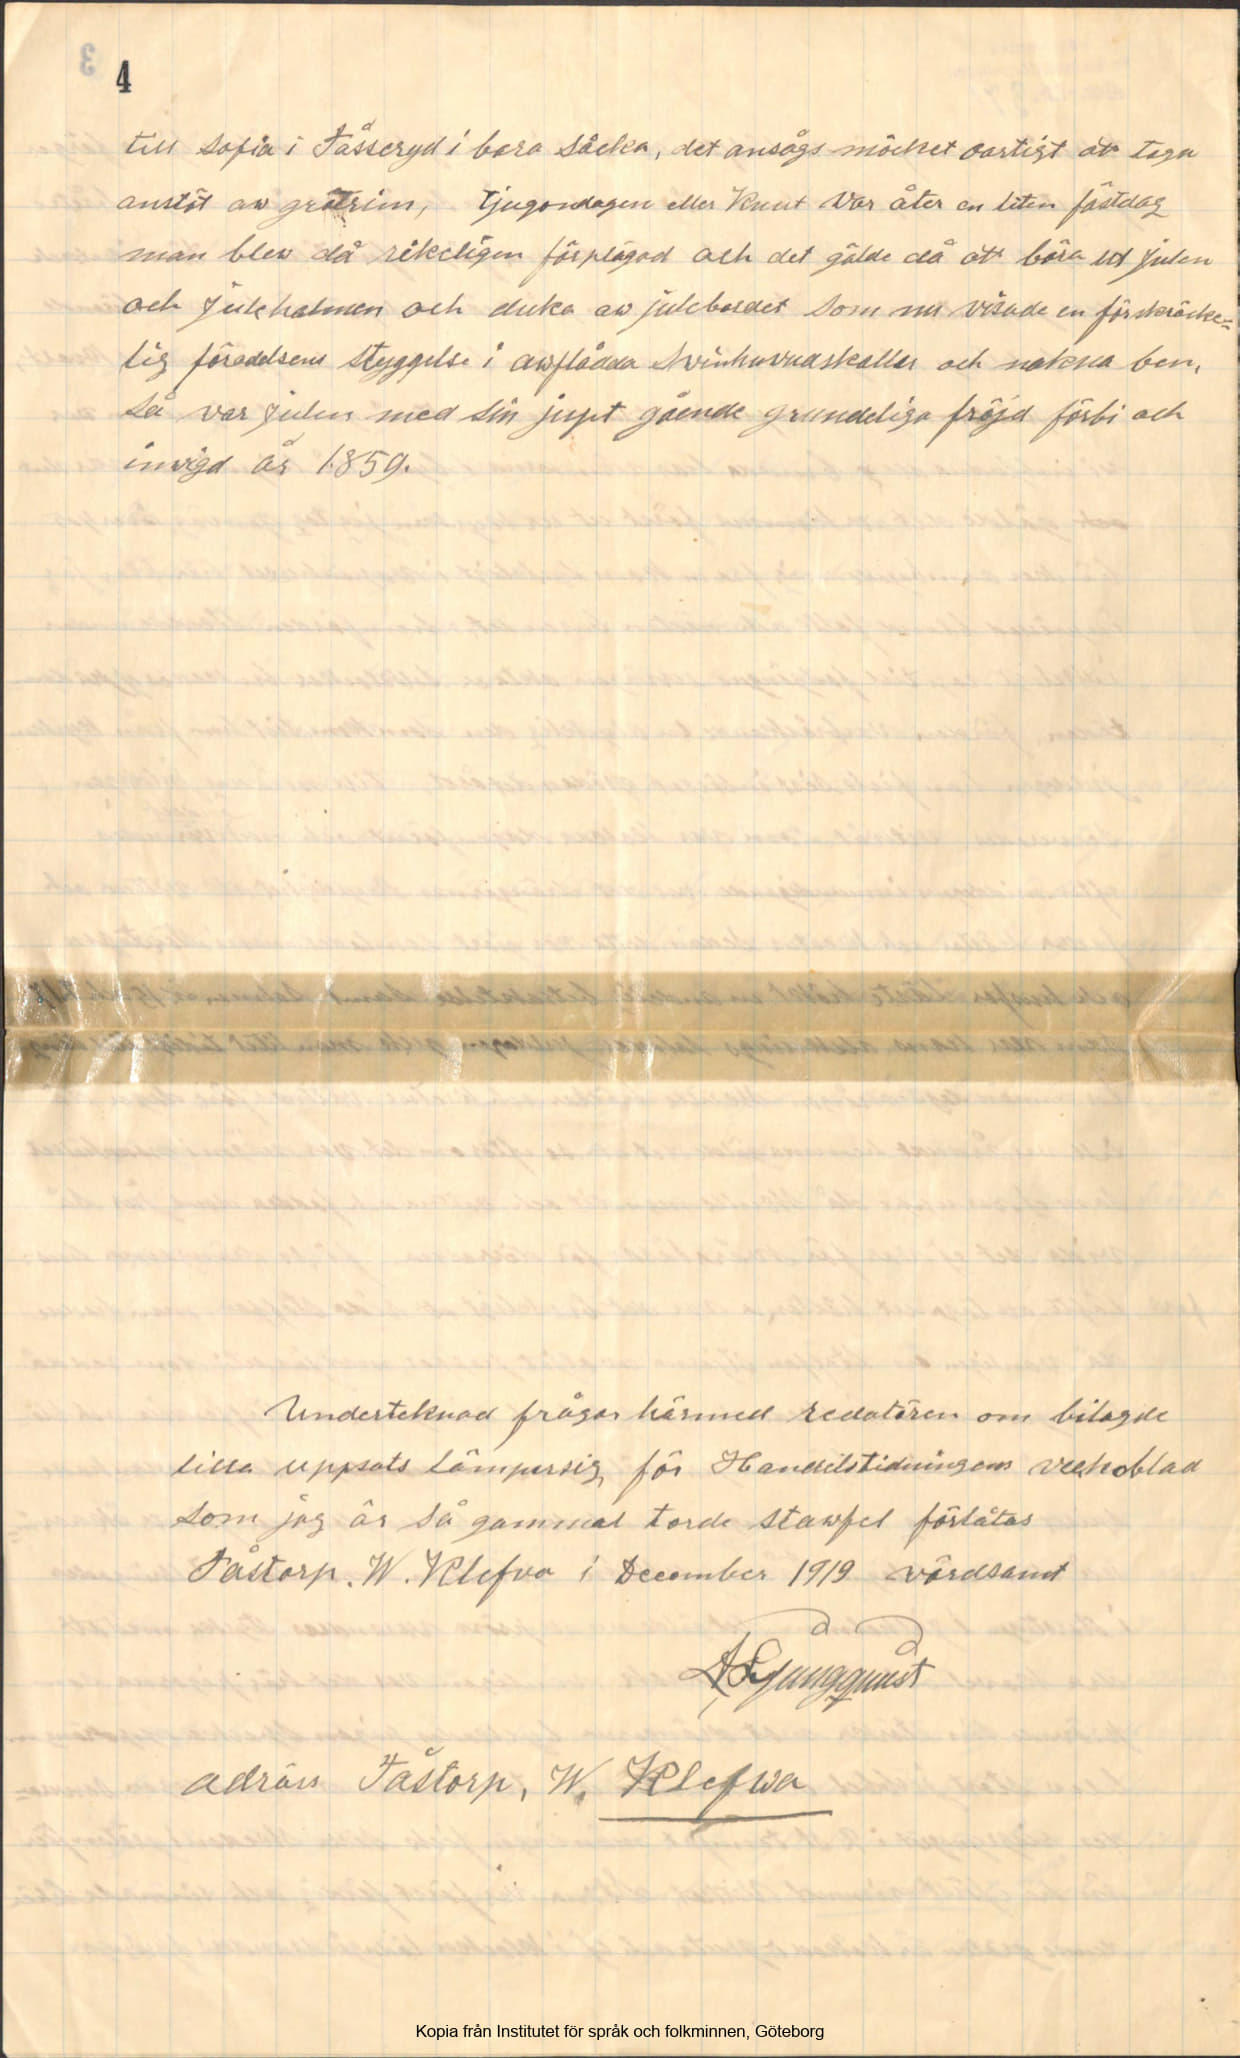 4
till Sofia i Fåsseryd i bara säcka, det ansågs möcket oartigt att taga
anstöt aw grötrim, Tjugondagen eller Knut var åter en liten fästdag
man blew då rikeligen förplägad och det gälde då att bära ut julen
och julehalmen och duka aw julebordet som nu visade en förskräcke=
lig förödelsens styggelse i awflådda Svinhuvudskallar och nakna ben,
så var julen med sin jupt gående grundeliga fröjd förbi och
invigd år 1859.
Undertecknad frågar härmed redatören om bilagde
lilla uppsats lämparsig för Handelstidningens veckoblad
som jag är så gammal torde stawfel förlåtas
Fåstorp. W. Klefva i December 1919 vördsamt
A Ljungqquist
adräss Fåstorp, W. Klefwa
Kopia från Institutet för språk och folkminnen, Göteborg